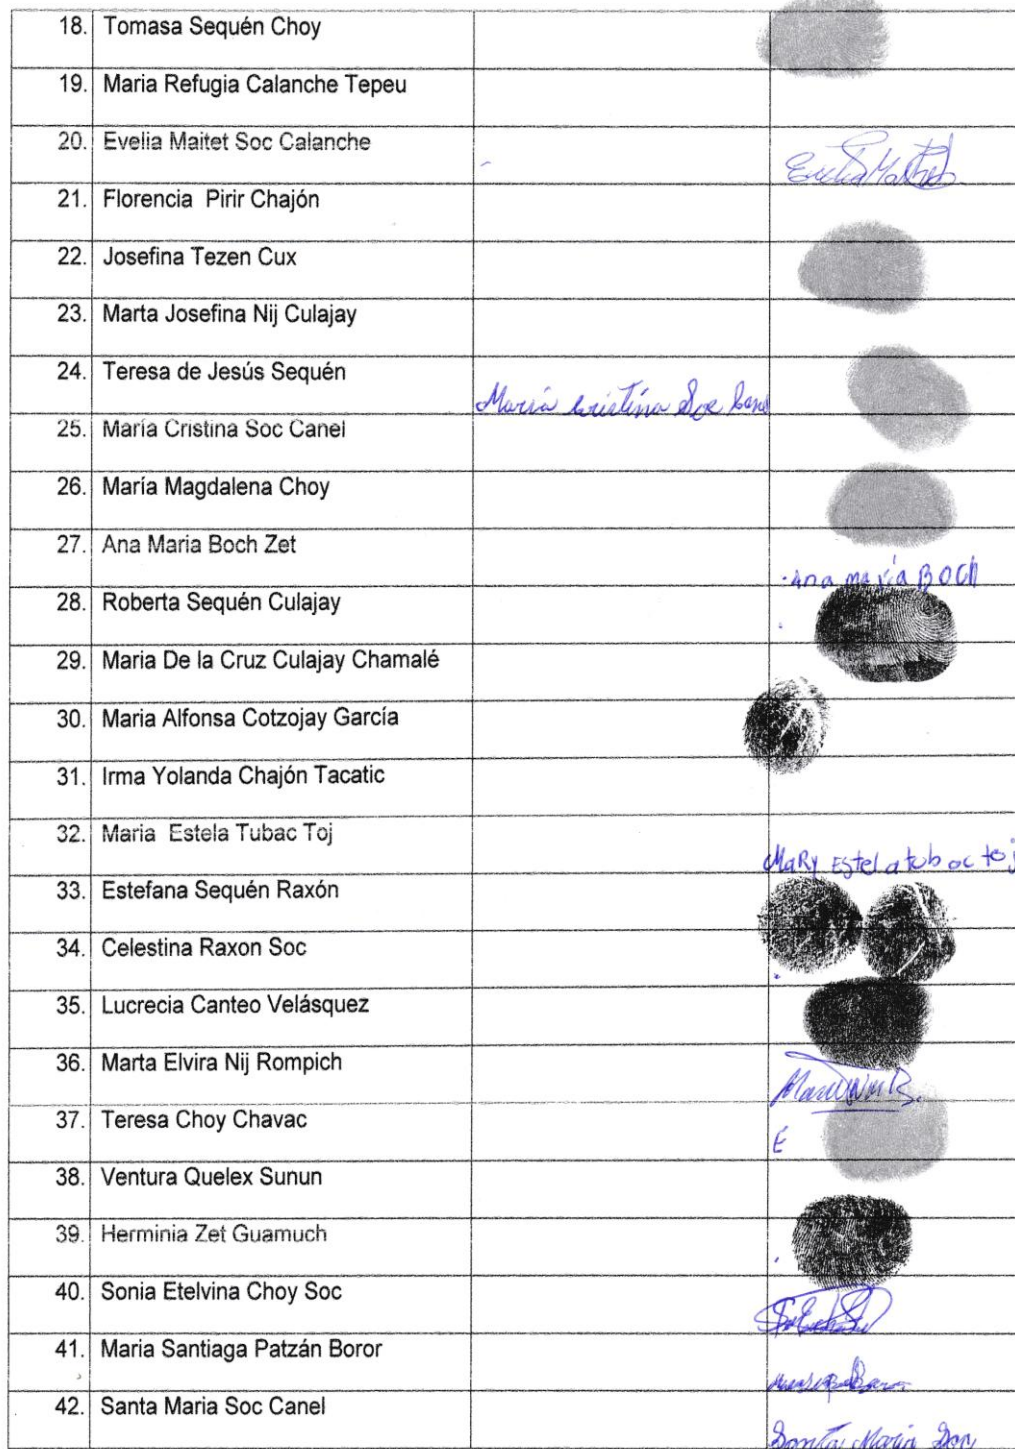 18. Tomasa Sequén Choy
19. Maria Refugia Calanche Tepeu
20. Evelia Maitet Soc Calanche
21. Florencia Pirir Chajón
22. Josefina Tezen Cux
23. Marta Josefina Nij Culajay
24. Teresa de Jesús Sequén
María Cristina Soc Canel
25. María Cristina Soc Canel
26. María Magdalena Choy
27. Ana Maria Boch Zet
Ana maría BOCH
28. Roberta Sequén Culajay
29. Maria De la Cruz Culajay Chamalé
30. Maria Alfonsa Cotzojay García
31. Irma Yolanda Chajón Tacatic
32. Maria Estela Tubac Toj
MaRy Estela tub oc toj
33. Estefana Sequén Raxón
34. Celestina Raxon Soc
35. Lucrecia Canteo Velásquez
36. Marta Elvira Nij Rompich
37. Teresa Choy Chavac
É
38. Ventura Quelex Sunun
39. Herminia Zet Guamuch
40. Sonia Etelvina Choy Soc
41. Maria Santiaga Patzán Boror
42. Santa Maria Soc Canel
Santa Maria Soc